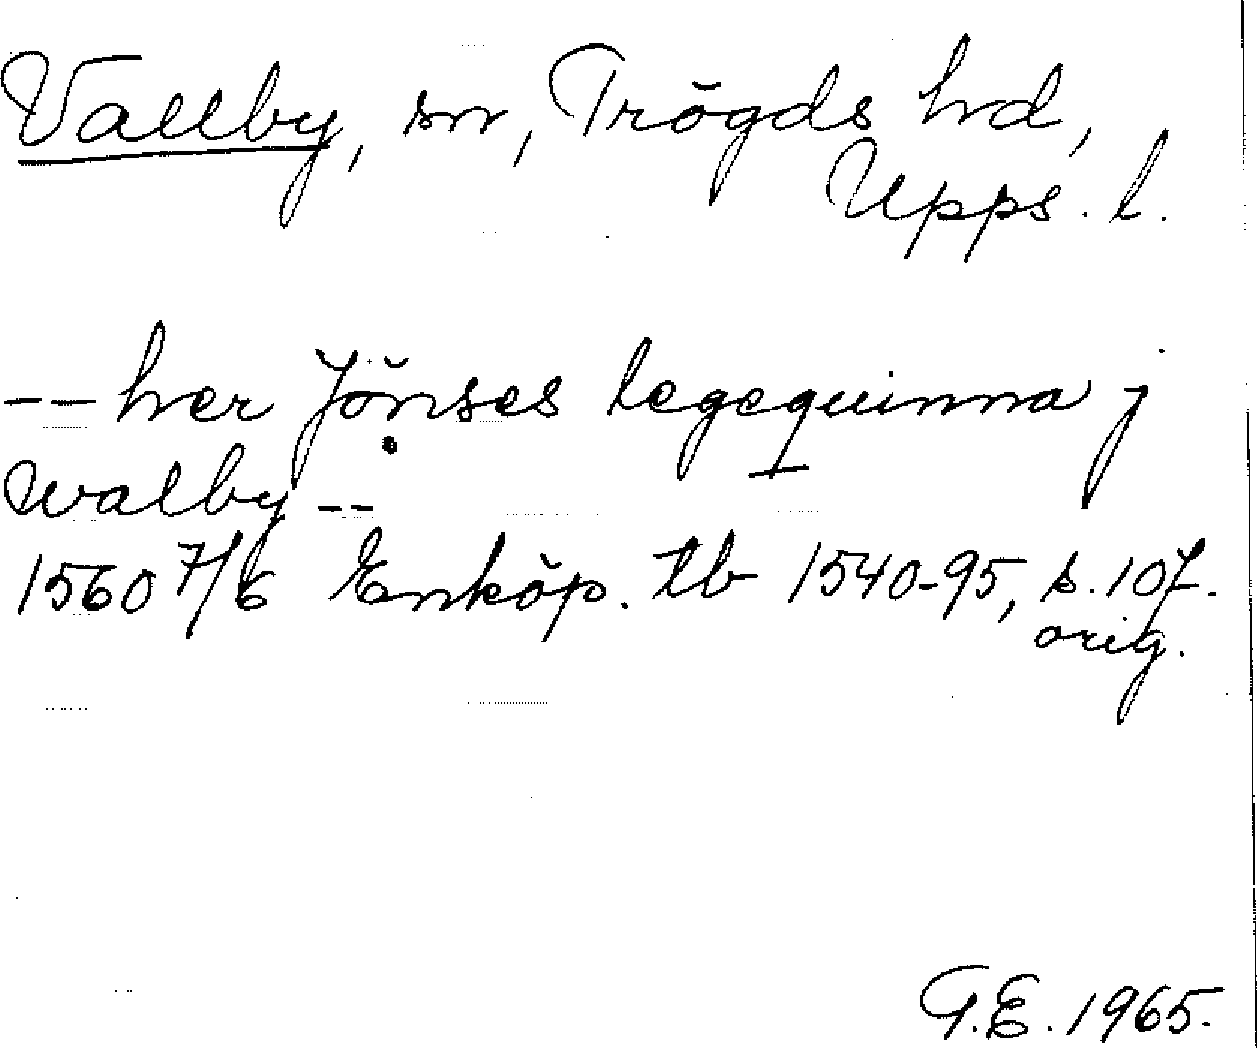 Vallby, sn, Trögds hd,
Upps. l.
-- her Jönses legequinna j
walby --
1560 7/6 Enköp. tb 1540-95, s. 107.
orig.
G.E. 1965.